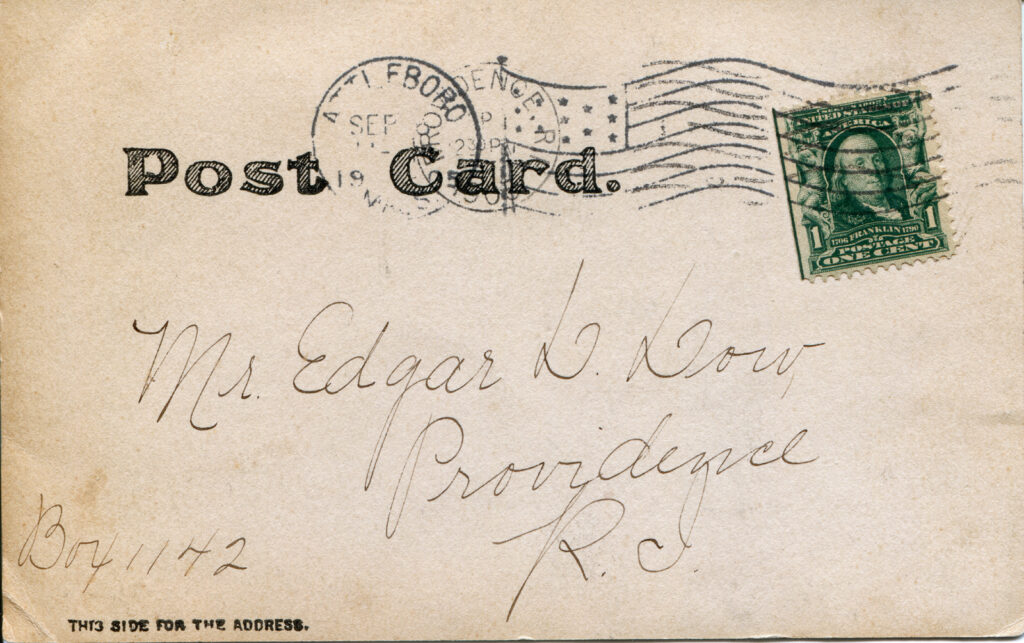 ATTLEBORO
SEP
19
MASS.
Post Card.
UNITED STATES OF
AMERICA
1 1706 FRANKLIN 1790 1
POSTAGE
ONE CENT
Mr. Edgar D. Dow,
Providence
R. I.
Box 1142
THIS SIDE FOR THE ADDRESS.